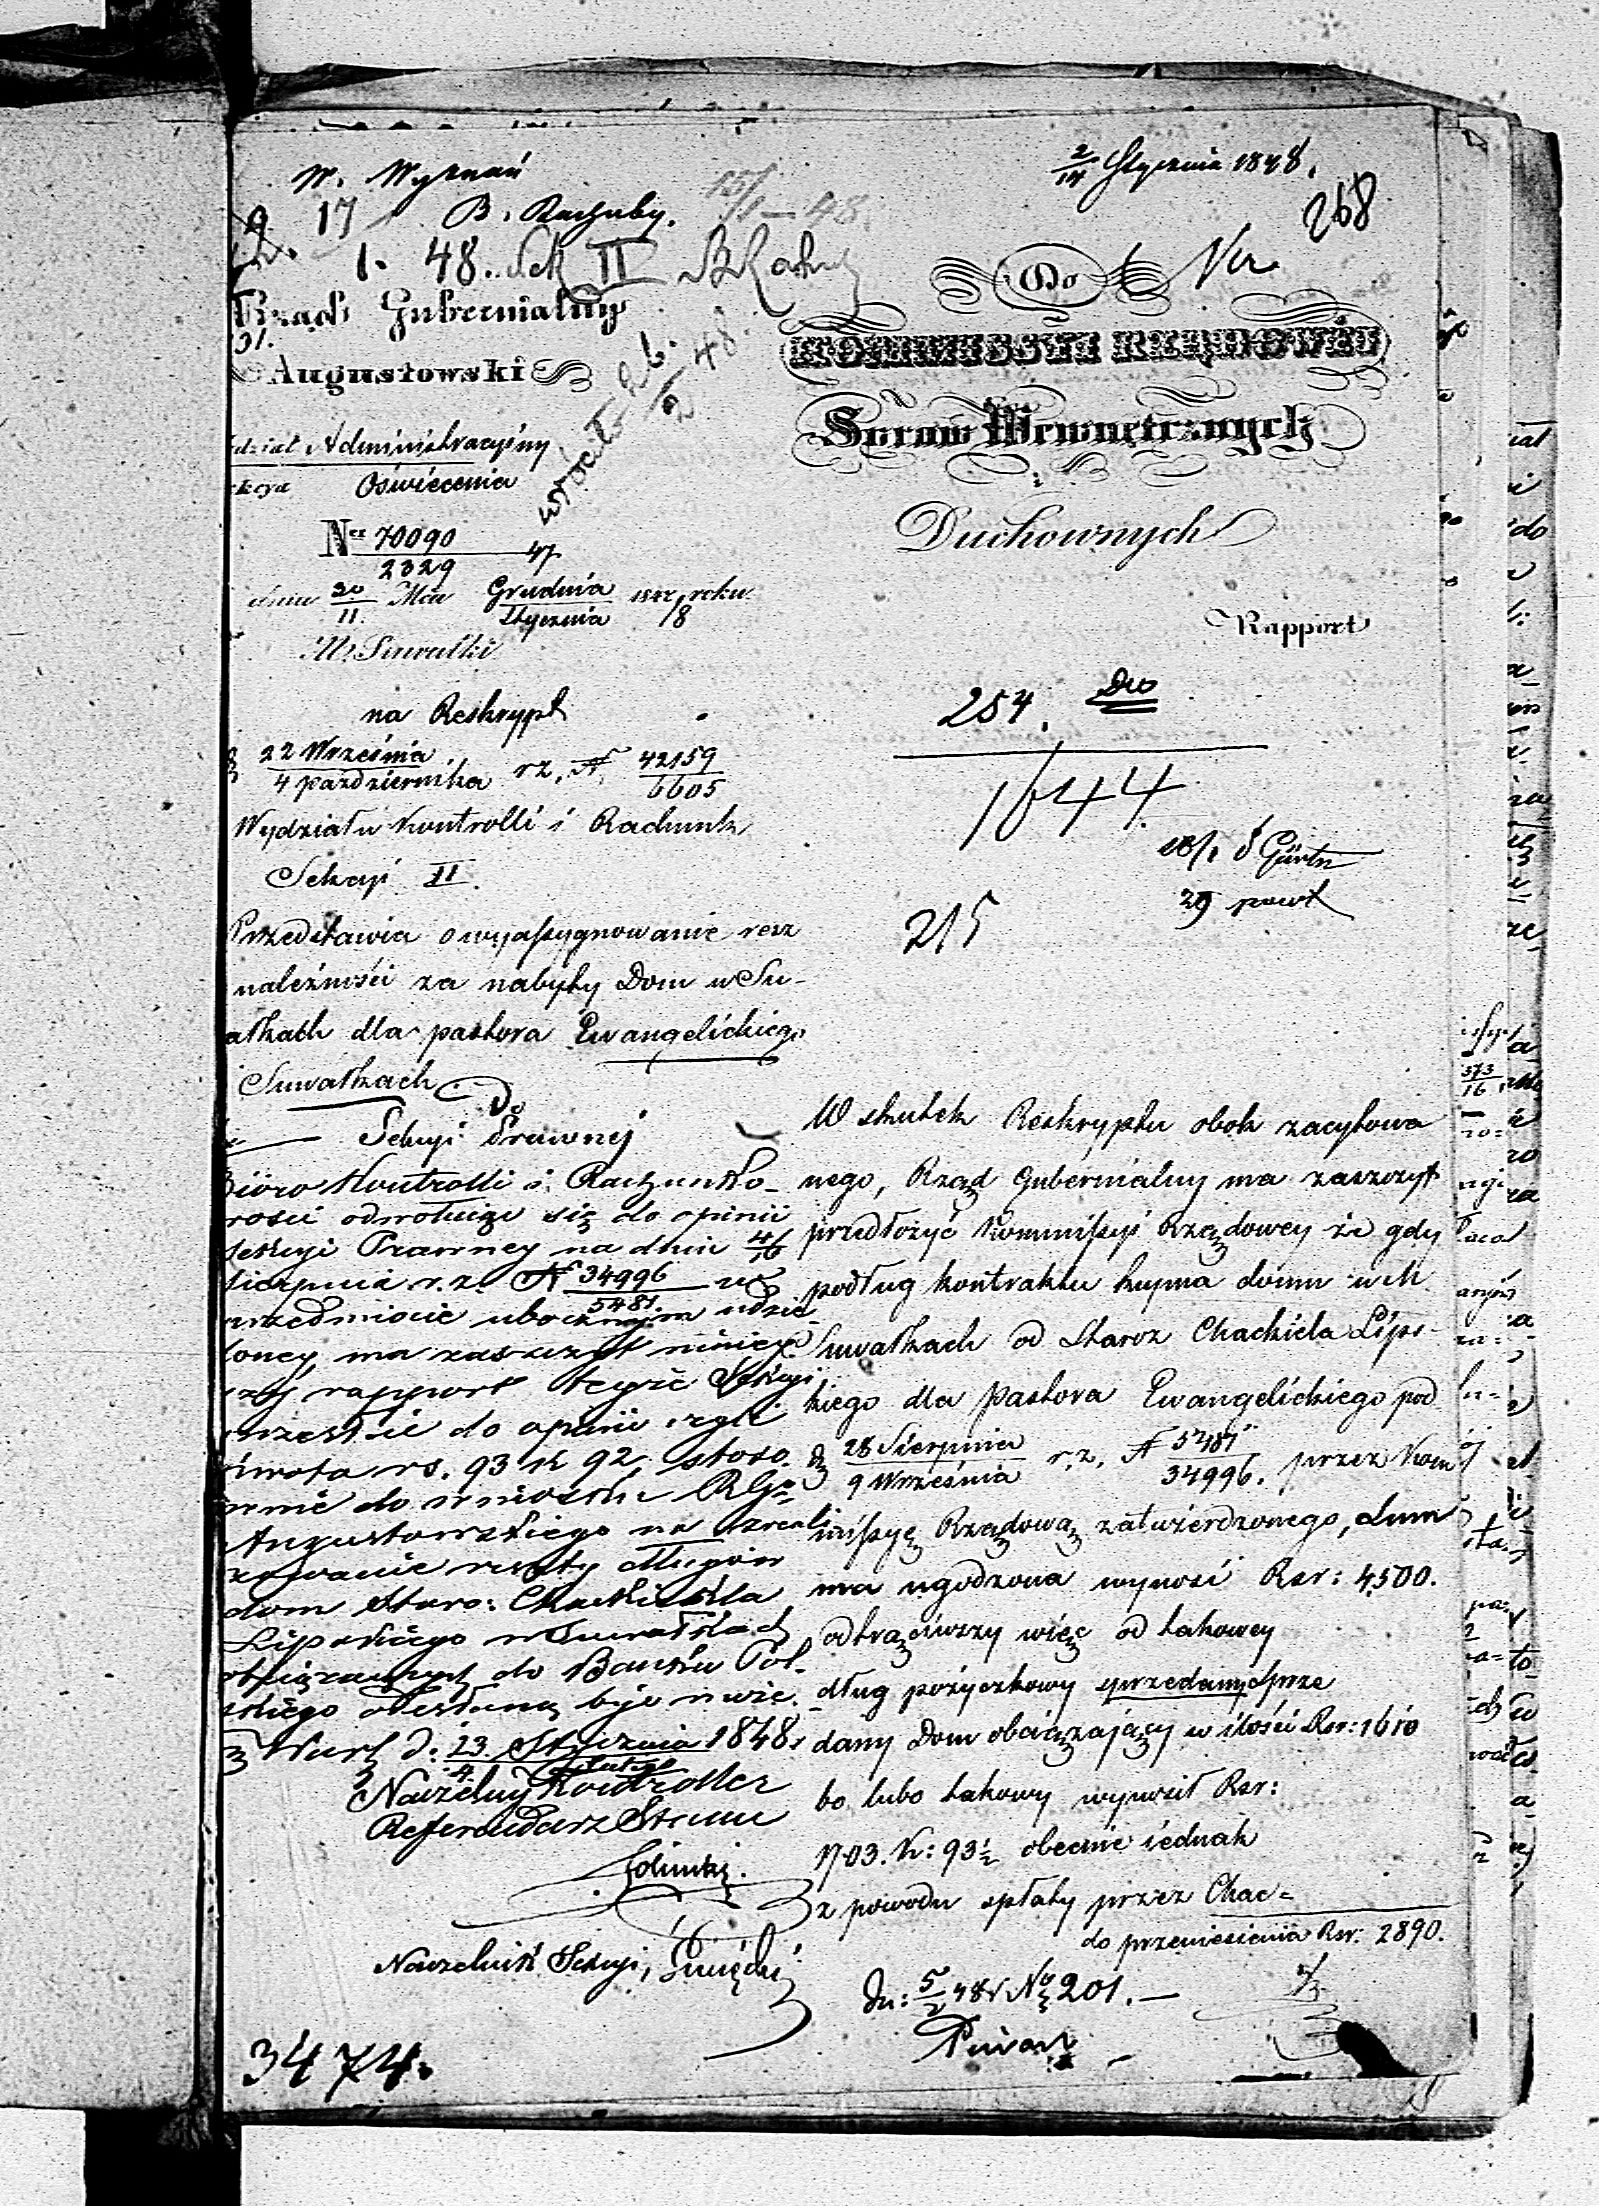 W. Wyznań
2/14 Stycznia 1848.
268
9 17 B. Rachuby. 15/1 – 48.
1. 48. Sek II
Do
Rząd Gubernialny
Augustowski
KOMMISSYI RZĄDOWÉY
Spraw Wewnętrznych
i
Duchownych
wrócił 26/2 48.
dział Administracyjny
kcya Oświecenia
Ner 70090/2329 47
dnia 30/11 Mca Grudnia/Stycznia 184 7/8 roku
W. Suwałki
Rapport
254.
1644.
18/1
29
215
na Reskrypt
22 Września/4 października rz. N 42159/6605
Wydziału Kontrolli i Rachunk
Sekcyi II.
Przedstawia o wyassygnowanie resz
należności za nabyty Dom w Su-
ałkach dla pastora Ewangelickiego
Suwałkach
Do
Sekcyi Prawnej
Bióro Kontrolli i Rachunko-
wości odwołując się do opinii
Sekcyi Prawney na dniu 4/16
Sierpnia r. z. N 34996/5481. w
przedmiocie ubocznym udzie-
loney, ma zaszczyt niniey-
szy rapport teyże Sekcyi
przesłać do opinii czyli
kwota rs. 93 k 92 stoso-
wnie do wniosku RGo
Augustowskiego na zreali-
zowanie reszty długów
dom Staro: Chackiela
Lipskiego w Suwałkach
obciążających do Banku Pol-
skiego odesłaną być może.
Warsz d. 23 Stycznia/4 Lutego 1848.
Naczelny Kontroller
Referendarz Stanu
Naczelnik Sekcyi,
3474.
W skutek Reskryptu obok zacytowa
nego, Rząd Gubernialny ma zaszczyt
przedłożyć Kommissyi Rządowey że gdy
podług kontraktu kupna domu w M.
Suwałkach od Staroz Chackiela Lips-
kiego dla pastora Ewangelickiego pod
d. 28 Sierpnia/9 Września r. z. N 5481/34996. przez Kom
missyę Rządową zatwierdzonego, sum
ma ugodzona wynosi Rsr: 4,500.
odtrąciwszy więc od takowey
dług pożyczkowy sprzedany sprze
dany Dom obciążający w ilości Rsr: 1610
bo lubo takowy wynosił Rsr:
1703. k: 93½ obecnie iednak
z powodu spłaty przez Chac=
do przeniesienia Rsr: 2890.
dn: 5/2 48 r No 201. —